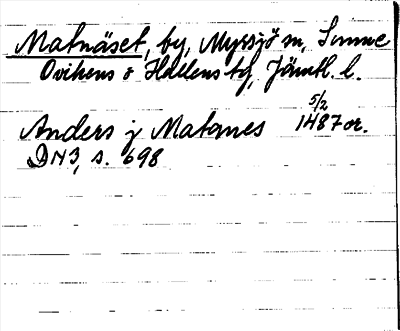 Matnäset, by, Myssjö sn, Sunne
Ovikens o Hallens tg, Jämtl. l.
Anders j Matanes 5/2 1487 or.
DN3, s. 698